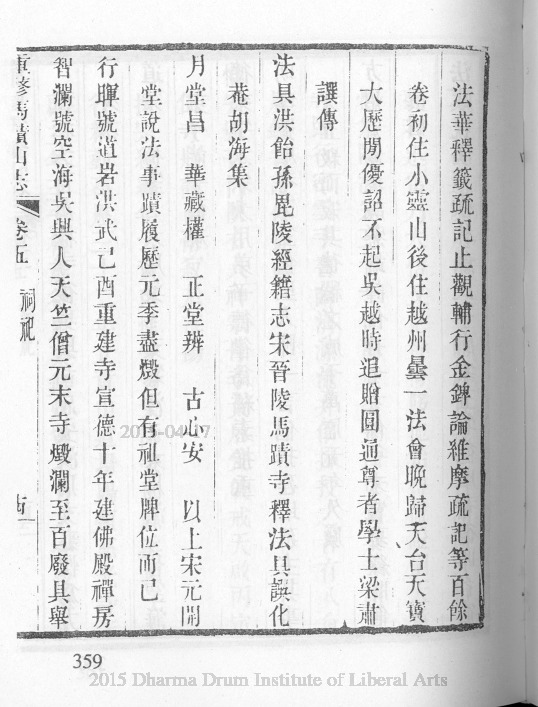 法華釋籤疏記止觀輔行金錍論維摩疏記等百餘
卷初住小靈山後住越州曇一法會晚歸天台天寶
大歷間優詔不起吳越時追贈圓通尊者學士梁肅
譔傳
法具洪飴孫毘陵經籍志宋晉陵馬蹟寺釋法具譔化
菴胡海集
月堂昌 華藏權 正堂辨 古心安 以上宋元開
堂說法事蹟履歷元季盡燬但有祖堂牌位而已
行暉號道岩洪武己酉重建寺宣德十年建佛殿禪房
智瀾號空海吳興人天竺僧元末寺燬瀾至百廢具舉
重修馬蹟山志 卷五 祠祀
359
2015 Dharma Drum Institute of Liberal Arts